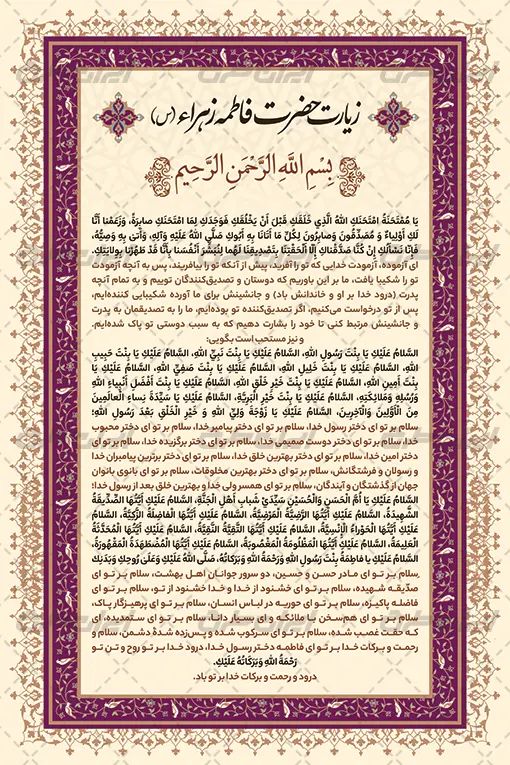 زیارت حضرت فاطمه زهراء (س)
بِسْمِ اللَّهِ الرَّحْمَنِ الرَّحِيمِ
يَا مُمْتَحَنَةُ امْتَحَنَكِ اللَّهُ الَّذِي خَلَقَكِ قَبْلَ أَنْ يَخْلُقَكِ فَوَجَدَكِ لِمَا امْتَحَنَكِ صَابِرَةً، وَزَعَمْنَا أَنَّا
لَكِ أَوْلِيَاءُ وَ مُصَدِّقُونَ وَصَابِرُونَ لِكُلِّ مَا أَتَانَا بِهِ أَبُوكِ صَلَّى اللَّهُ عَلَيْهِ وَآلِهِ، وَأَتَى بِهِ وَصِيُّهُ،
فَإِنَّا نَسْأَلُكِ إِنْ كُنَّا صَدَّقْنَاكِ إِلَّا أَلْحَقْتِنَا بِتَصْدِيقِنَا لَهُمَا لِنُبَشِّرَ أَنْفُسَنَا بِأَنَّا قَدْ طَهُرْنَا بِوِلَايَتِكِ.
ای آزموده، آزمودت خدایی که تو را آفرید، پیش از آنکه تو را بیافریند، پس به آنچه آزمودت
تو را شکیبا یافت، ما بر این باوریم که دوستان و تصدیق‌کنندگان توییم و به تمام آنچه
پدرت (درود خدا بر او و خاندانش باد) و جانشینش برای ما آورده شکیبایی کننده‌ایم،
پس از تو درخواست می‌کنیم، اگر تصدیق‌کننده تو بوده‌ایم، ما را به تصدیقمان به پدرت
و جانشینش مرتبط کنی تا خود را بشارت دهیم که به سبب دوستی تو پاک شده‌ایم.
و نیز مستحب است بگویی:
السَّلامُ عَلَيْكِ يَا بِنْتَ رَسُولِ اللَّهِ، السَّلامُ عَلَيْكِ يَا بِنْتَ نَبِيِّ اللَّهِ، السَّلامُ عَلَيْكِ يَا بِنْتَ حَبِيبِ
اللَّهِ، السَّلامُ عَلَيْكِ يَا بِنْتَ خَلِيلِ اللَّهِ، السَّلامُ عَلَيْكِ يَا بِنْتَ صَفِيِّ اللَّهِ، السَّلامُ عَلَيْكِ يَا
بِنْتَ أَمِينِ اللَّهِ، السَّلامُ عَلَيْكِ يَا بِنْتَ خَيْرِ خَلْقِ اللَّهِ، السَّلامُ عَلَيْكِ يَا بِنْتَ أَفْضَلِ أَنْبِيَاءِ اللَّهِ
وَرُسُلِهِ وَمَلائِكَتِهِ، السَّلامُ عَلَيْكِ يَا بِنْتَ خَيْرِ الْبَرِيَّةِ، السَّلامُ عَلَيْكِ يَا سَيِّدَةَ نِسَاءِ الْعَالَمِينَ
مِنَ الْأَوَّلِينَ وَالْآخِرِينَ، السَّلامُ عَلَيْكِ يَا زَوْجَةَ وَلِيِّ اللَّهِ وَ خَيْرِ الْخَلْقِ بَعْدَ رَسُولِ اللَّهِ؛
سلام بر تو ای دختر رسول خدا، سلام بر تو ای دختر پیامبر خدا، سلام بر تو ای دختر محبوب
خدا، سلام بر تو ای دختر دوست صمیمی خدا، سلام بر تو ای دختر برگزیده خدا، سلام بر تو ای
دختر امین خدا، سلام بر تو ای دختر بهترین خلق خدا، سلام بر تو ای دختر برترین پیامبران خدا
و رسولان و فرشتگانش، سلام بر تو ای دختر بهترین مخلوقات، سلام بر تو ای بانوی بانوان
جهان از گذشتگان و آیندگان، سلام بر تو ای همسر ولی خدا و بهترین خلق بعد از رسول خدا؛
السَّلامُ عَلَيْكِ يَا أُمَّ الْحَسَنِ وَالْحُسَيْنِ سَيِّدَيْ شَبَابِ أَهْلِ الْجَنَّةِ، السَّلامُ عَلَيْكِ أَيَّتُهَا الصِّدِّيقَةُ
الشَّهِيدَةُ، السَّلامُ عَلَيْكِ أَيَّتُهَا الرَّضِيَّةُ الْمَرْضِيَّةُ، السَّلامُ عَلَيْكِ أَيَّتُهَا الْفَاضِلَةُ الزَّكِيَّةُ، السَّلامُ
عَلَيْكِ أَيَّتُهَا الْحَوْرَاءُ الْإِنْسِيَّةُ، السَّلامُ عَلَيْكِ أَيَّتُهَا التَّقِيَّةُ النَّقِيَّةُ، السَّلامُ عَلَيْكِ أَيَّتُهَا الْمُحَدَّثَةُ
الْعَلِيمَةُ، السَّلامُ عَلَيْكِ أَيَّتُهَا الْمَظْلُومَةُ الْمَغْصُوبَةُ، السَّلامُ عَلَيْكِ أَيَّتُهَا الْمُضْطَهَدَةُ الْمَقْهُورَةُ،
السَّلامُ عَلَيْكِ يَا فَاطِمَةُ بِنْتَ رَسُولِ اللَّهِ وَرَحْمَةُ اللَّهِ وَبَرَكَاتُهُ، صَلَّى اللَّهُ عَلَيْكِ وَعَلَى رُوحِكِ وَبَدَنِكِ
سلام بر تو ای مادر حسن و حسین، دو سرور جوانان اهل بهشت، سلام بر تو ای
صدّیقه شهیده، سلام بر تو ای خشنود از خدا و خدا خشنود از تو، سلام بر تو ای
فاضله پاکیزه، سلام بر تو ای حوریه در لباس انسان، سلام بر تو ای پرهیزگار پاک،
سلام بر تو ای هم‌سخن با ملائکه و ای بسیار دانا، سلام بر تو ای ستمدیده، ای
که حقت غصب شده، سلام بر تو ای سرکوب شده و پس‌زده شدهٔ دشمن، سلام و
رحمت و برکات خدا بر تو ای فاطمه دختر رسول خدا، درود خدا بر تو روح و تن تو
رَحْمَةُ اللَّهِ وَبَرَكَاتُهُ عَلَيْكِ.
درود و رحمت و برکات خدا بر تو باد.